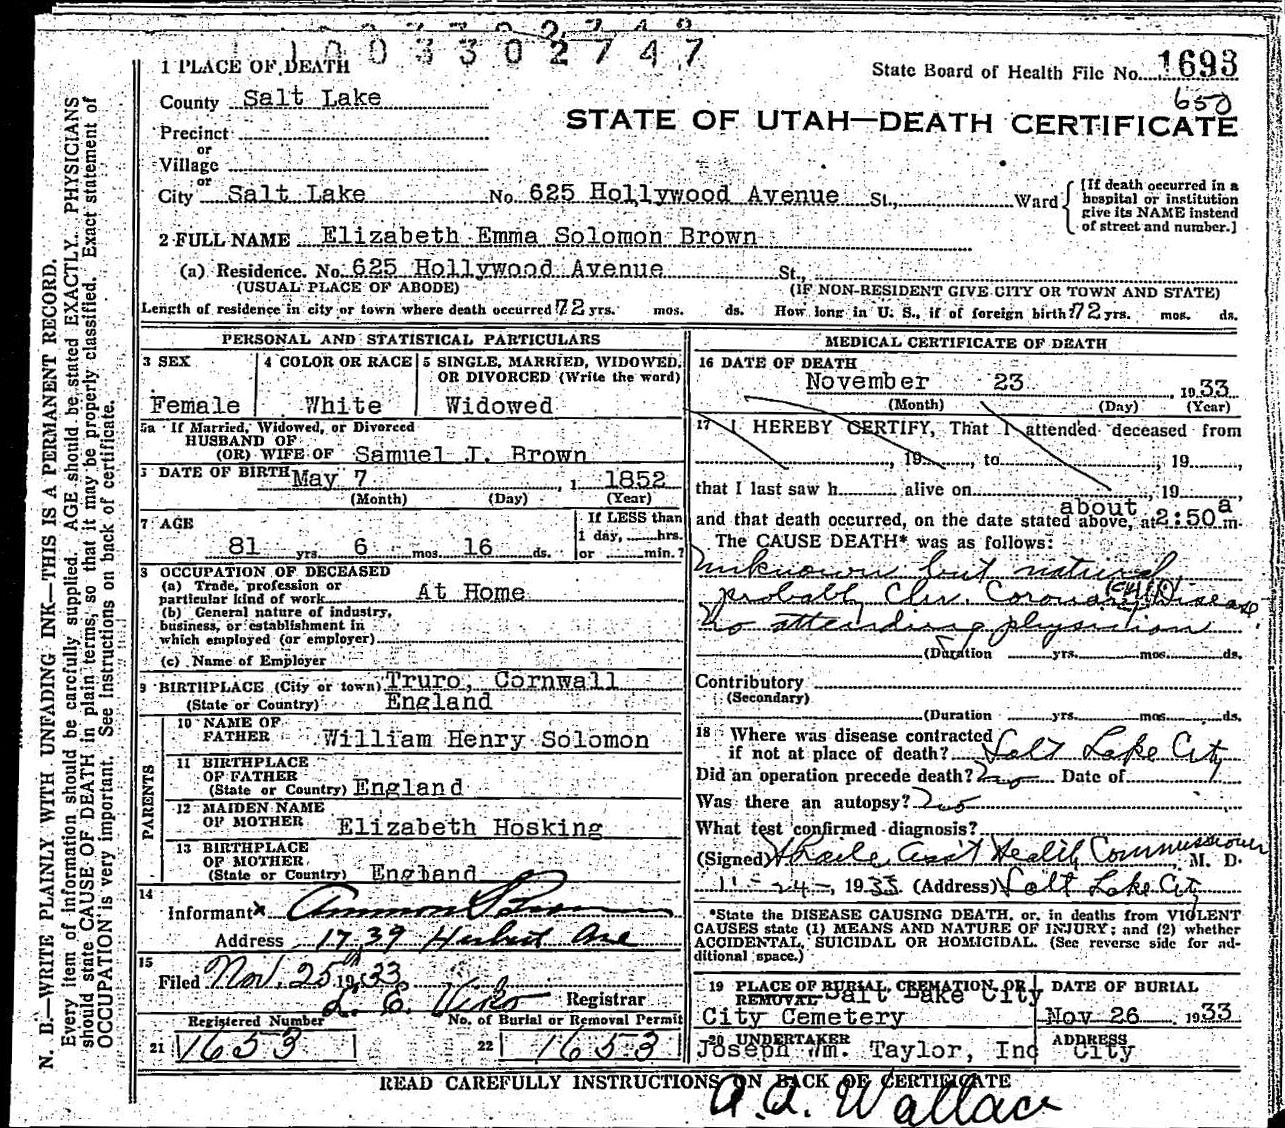 1003302747
1 PLACE OF DEATH
State Board of Health File No. 1693
650
County Salt Lake
STATE OF UTAH—DEATH CERTIFICATE
Precinct
or
Village
or
City Salt Lake No. 625 Hollywood Avenue St., Ward
[If death occurred in a
hospital or institution
give its NAME instead
of street and number.]
2 FULL NAME Elizabeth Emma Solomon Brown
(a) Residence. No. 625 Hollywood Avenue St.,
(USUAL PLACE OF ABODE) (IF NON-RESIDENT GIVE CITY OR TOWN AND STATE)
Length of residence in city or town where death occurred 72 yrs. mos. ds. How long in U. S., if of foreign birth? 72 yrs. mos. ds.
PERSONAL AND STATISTICAL PARTICULARS
3 SEX
Female
4 COLOR OR RACE
White
5 SINGLE, MARRIED, WIDOWED,
OR DIVORCED (Write the word)
Widowed
5a If Married, Widowed, or Divorced
HUSBAND OF
(OR) WIFE OF Samuel J. Brown
DATE OF BIRTH May 7 , 1 1852
(Month) (Day) (Year)
7 AGE
81 yrs 6 mos. 16 ds.
If LESS than
1 day, hrs.
or min.?
8 OCCUPATION OF DECEASED
(a) Trade, profession or
particular kind of work At Home
(b) General nature of industry,
business, or establishment in
which employed (or employer)
(c) Name of Employer
9 BIRTHPLACE (City or town) Truro, Cornwall
(State or Country) England
PARENTS
10 NAME OF
FATHER William Henry Solomon
11 BIRTHPLACE
OF FATHER
(State or Country) England
12 MAIDEN NAME
OF MOTHER Elizabeth Hosking
13 BIRTHPLACE
OF MOTHER
(State or Country) England
14
Informant x Brown
Address 1739 Herbert Ave
15
Filed Nov. 25th 1933
L. E. Registrar
Registered Number No. of Burial or Removal Permit
21 1653 22 1653
MEDICAL CERTIFICATE OF DEATH
16 DATE OF DEATH
November 23 , 1933
(Month) (Day) (Year)
17 I HEREBY CERTIFY, That I attended deceased from
, 19 , to , 19 ,
that I last saw h alive on , 19 ,
about
and that death occurred, on the date stated above, at 2:50 a m.
The CAUSE DEATH* was as follows:
Unknown but natural
probably Chr. Coronary Disease
No attending physician
(Duration yrs. mos. ds.
Contributory
(Secondary)
(Duration yrs. mos. ds.
18 Where was disease contracted
if not at place of death? Salt Lake City
Did an operation precede death? No Date of
Was there an autopsy? No
What test confirmed diagnosis?
(Signed) Ass't Health Commissioner, M. D.
11-24-, 1933 (Address) Salt Lake City
*State the DISEASE CAUSING DEATH, or, in deaths from VIOLENT
CAUSES state (1) MEANS AND NATURE OF INJURY; and (2) whether
ACCIDENTAL, SUICIDAL OR HOMICIDAL. (See reverse side for ad-
ditional space.)
19 PLACE OF BURIAL, CREMATION, OR
REMOVAL Salt Lake City
City Cemetery
DATE OF BURIAL
Nov 26 1933
20 UNDERTAKER
Joseph Wm. Taylor, Inc
ADDRESS
City
READ CAREFULLY INSTRUCTIONS ON BACK OF CERTIFICATE
A. A. Wallace
N. B.—WRITE PLAINLY WITH UNFADING INK—THIS IS A PERMANENT RECORD.
Every item of information should be carefully supplied. AGE should be stated EXACTLY. PHYSICIANS
should state CAUSE OF DEATH in plain terms, so that it may be properly classified. Exact statement of
OCCUPATION is very important. See instructions on back of certificate.